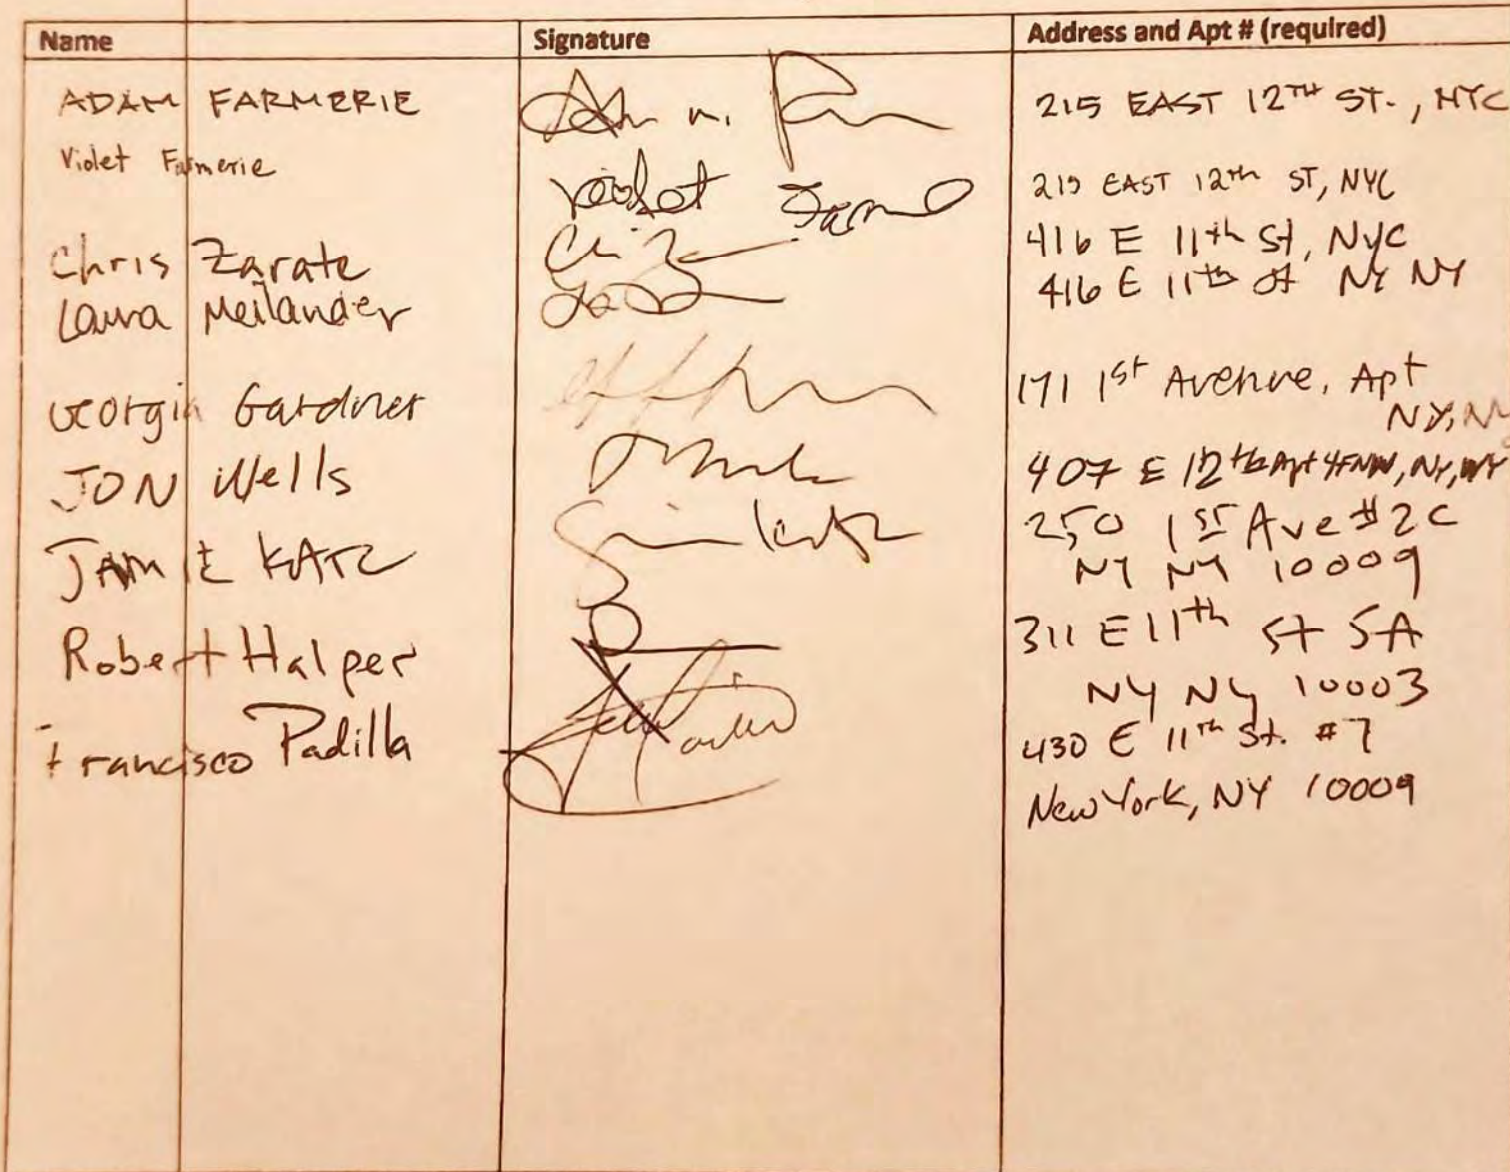 Name Signature Address and Apt # (required)
ADAM FARMERIE 215 EAST 12TH ST., NYC
Violet Farmerie violet 215 EAST 12th ST, NYC
Chris Zarate 416 E 11th St, NYC
Laura Meilander 416 E 11th St NY NY
Georgia Gardner 171 1st Avenue, Apt
NY,
JON Wells 407 E 12th Apt 4FNW, NY, NY
JAMIE KATZ 250 1ST Ave #2C
NY NY 10009
Robert Halper 311 E 11th St 5A
NY NY 10003
Francisco Padilla 430 E 11th St. #7
New York, NY 10009